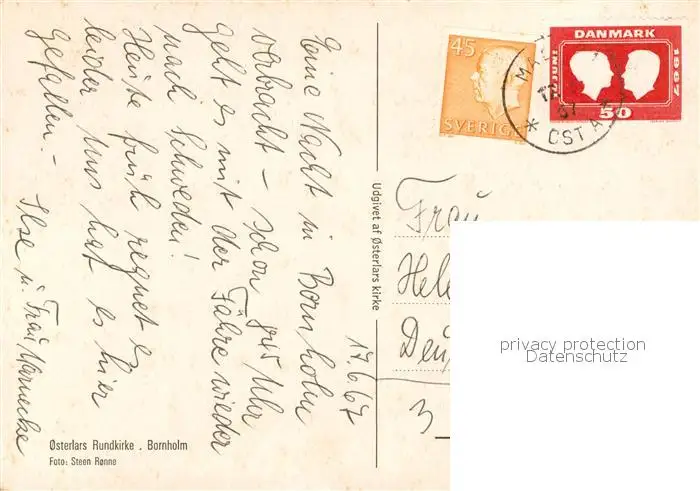 17.6.67
Eine Nacht in Bornholm
verbracht – schon 845 Uhr
geht es mit der Fähre wieder
nach Schweden!
Heute früh regnet es
leider. Uns hat es hier
gefallen. –
Ilse u. Frau Warnecke
Østerlars Rundkirke . Bornholm
Foto: Steen Rønne
Udgivet af Østerlars kirke
45
SVERIGE
DANMARK
1967
50
67
ÖST
Frau
Hele
Deu
3
privacy protection
Datenschutz